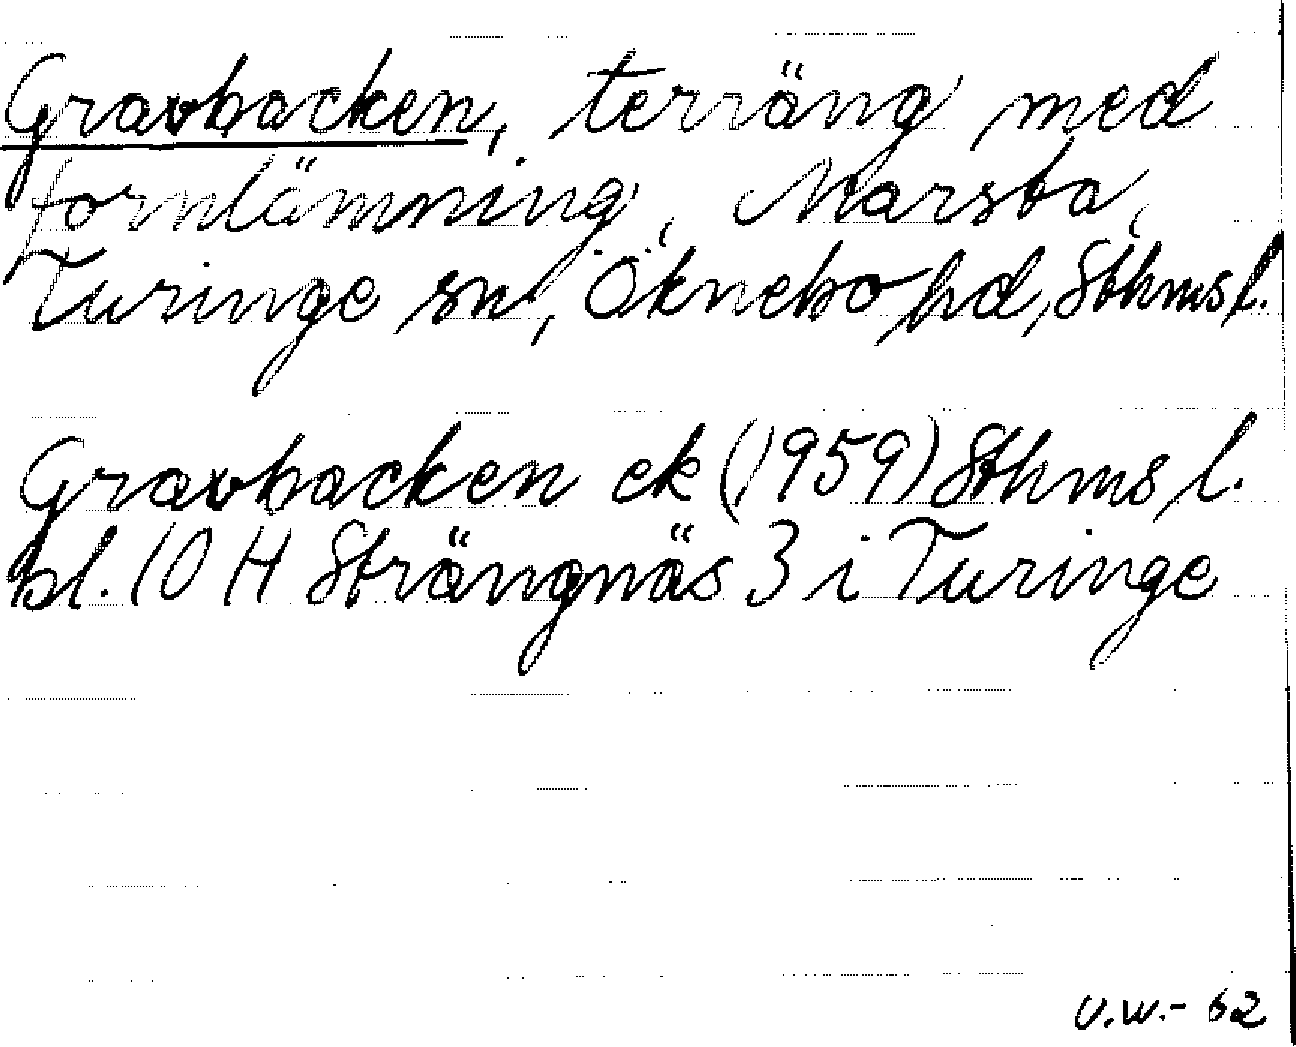 Gravbacken, terräng med
fornlämning, Marsta,
Turinge sn, Öknebo hd, Sthms l.
Gravbacken ek (1959) Sthms l.
bl. 10 H Strängnäs 3 i Turinge
U.W.- 62